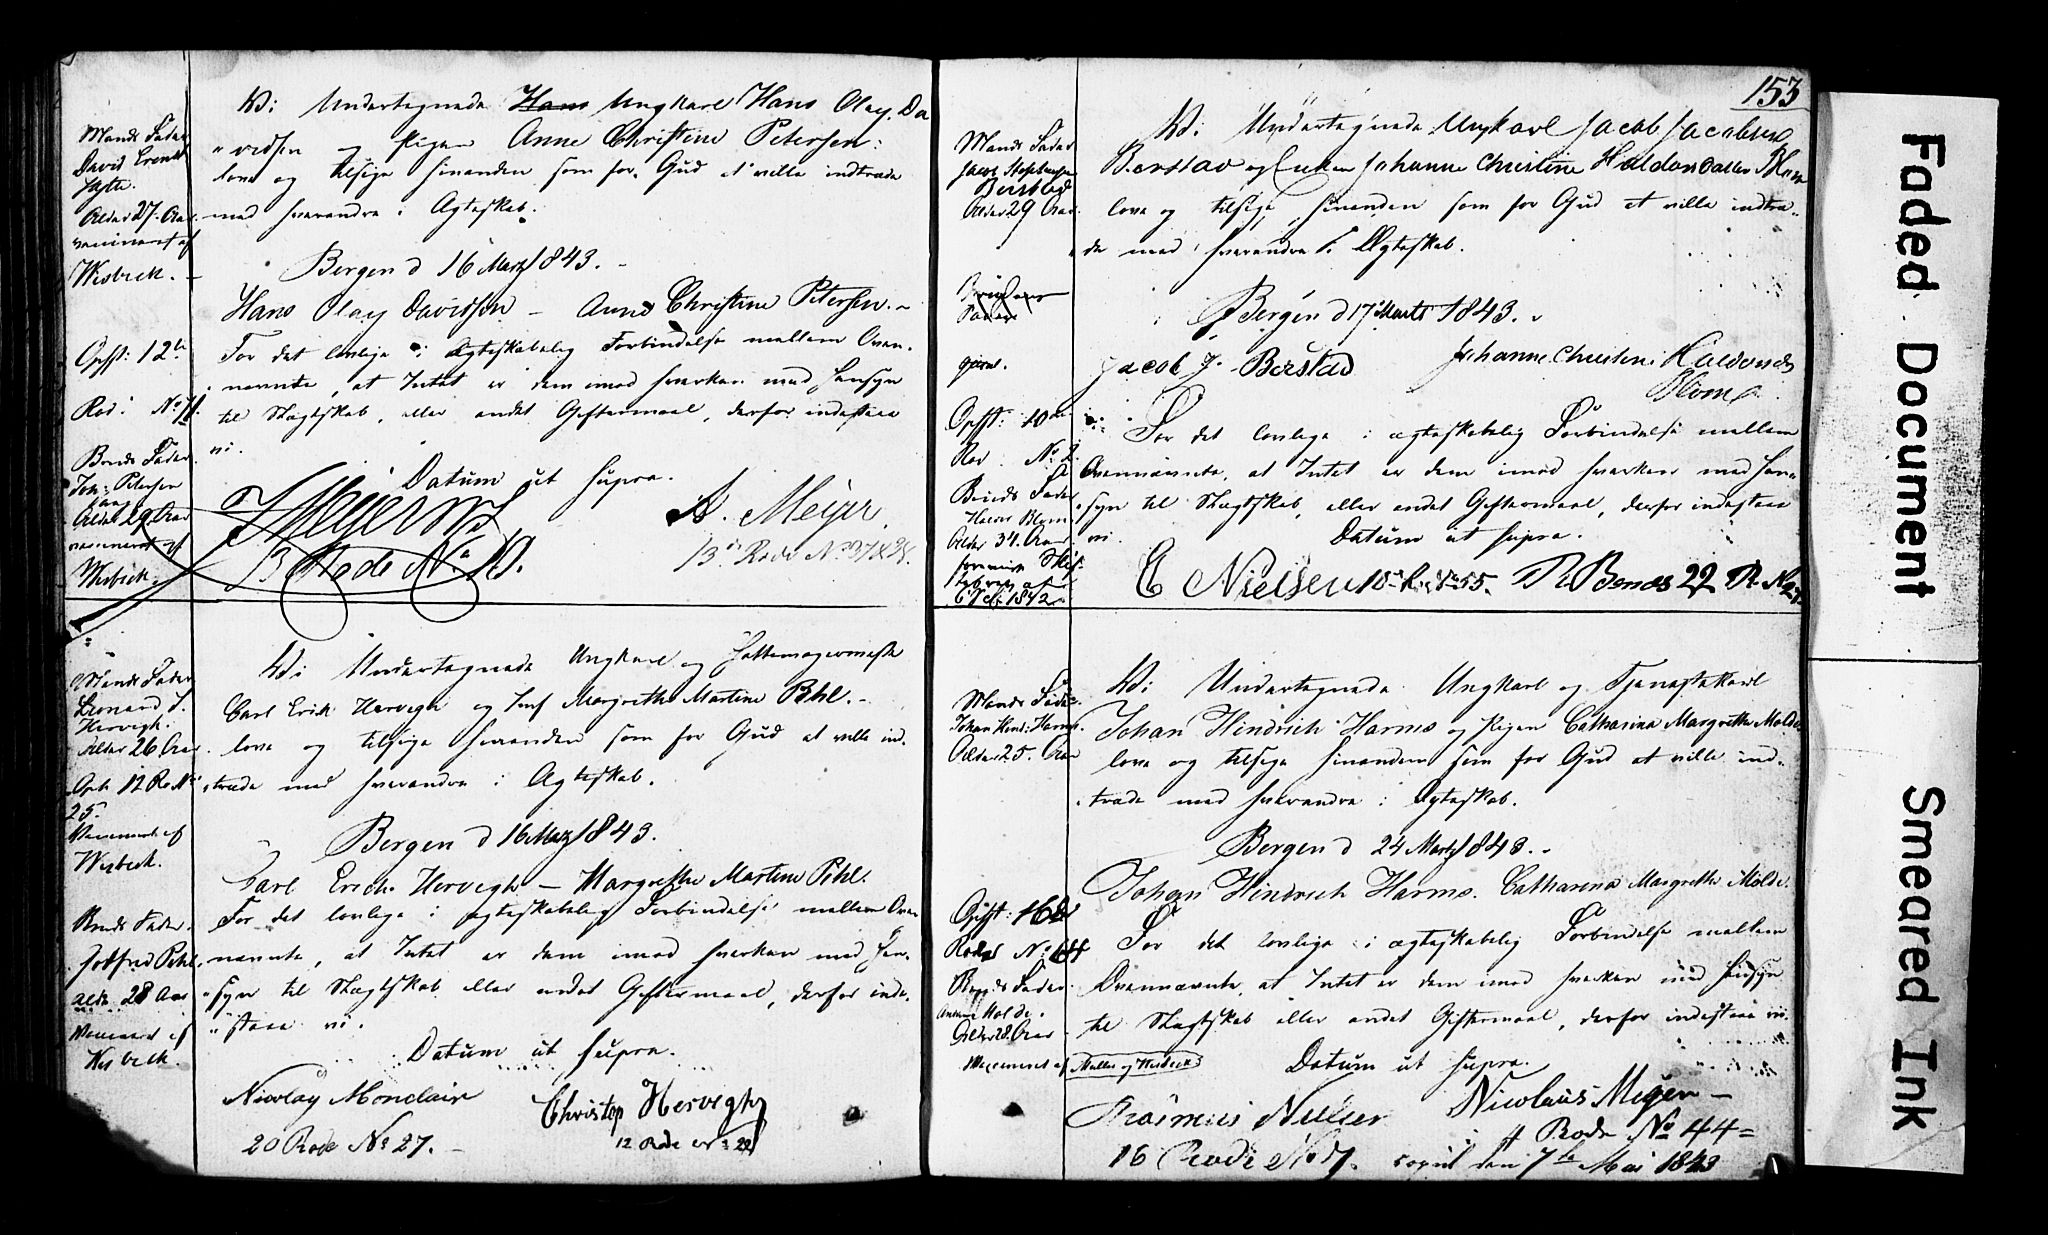 Mands Fader
David Erenst
Alder 27. Aar
vaccineret af
Wisbeck.
Opst: 12te
Rod: No 71.
Bruds Fader
Joh: Petersen
Alder 29 Aar
vaccineret af
Wisbeck.
Vi Undertegnede Hans Ungkarl Hans Olay Da
vidsen og Pigen Anne Christine Petersen
love og tilsige hinanden som for Gud at ville indtræde
med hverandre i Ægteskab.
Bergen d 16 Marz 1843.
Hans Olay Davidsen – Anne Christine Petersen.
For det lovlige i ægteskabelig Forbindelse mellem Oven-
nævnte, at Intet er dem imod hverken med Hensyn
til Slægtskab, eller andet Giftermaal, derfor indestaae
vi.
Datum ut supra.
A. Meyer.
13 Rode No 10.
13de Rode No 37 & 38.
Mands Fader
Leonard J.
Hervegh.
Alder 26 Aar
Opst 12 Ro No
25.
Vaccineret af
Wisbeck.
Bruds Fader.
Gotfred Pihl.
alder 28 Aar
Vaccineret af
Wisbeck.
Vi Undertegnede Ungkarl og Hattemagermester
Carl Erick Hervegh og Jomf Margrethe Martine Pihl.
love og tilsige hverandre som for Gud at ville ind-
træde med hverandre i Ægteskab.
Bergen d 16 Marz 1843.
Carl Erich Hervegh – Margrethe Martine Pihl.
For det lovlige i ægteskabelig Forbindelse mellem Oven
nævnte, at Intet er dem imod hverken med Hen-
syn til Slægtskab eller andet Giftermaal, derfor inde-
staae vi.
Datum ut supra.
Nicolay Monclair
Christop Hervegh
20 Rode No 27.
12 Rode No 28
153
Mands Fader
Jacob
Berstad
Alder 29 Aar.
Opst: 10de
Rod. No 2.
Bruds Fader
Blom
Alder 34. Aar
Vi Undertegnede Ungkarl Jacob Jacobsen
Berstad og Enken Johanne Christine Haldorsdatter Blom
love og tilsige hinanden som for Gud at ville indtræ-
de med hverandre i Ægteskab.
Bergen d 17 Marts 1843.
Jacob J. Berstad
Johanne Christine Haldorsd
Blom
For det lovlige i ægteskabelig Forbindelse mellem
Ovennævnte, at Intet er dem imod hverken med Hen-
syn til Slægtskab, eller andet Giftermaal, derfor indestaae
vi.
Datum ut supra.
C Nielsen
22 R. No 27.
Mands Fader
Johan Hend: Harms.
Alder 25. Aar
Opst: 16de
Rodes No 44
Bruds Fader.
Molde.
Alder 28. Aar
Vaccineret af Møller og Wisbeck
Vi Undertegnede Ungkarl og Tjenestekarl
Johan Hindrich Harms og Pigen Catharina Margrethe Molde
love og tilsige hinanden som for Gud at ville ind-
træde med hverandre i Ægteskab.
Bergen d 24 Marz 1843.
Johan Hindrich Harms. Catharina Margrethe Molde.
For det lovlige i ægteskabelig Forbindelse mellem
Ovennævnte, at Intet er dem imod hverken med Hensyn
til Slægtskab eller andet Giftermaal, derfor indestaae vi.
Datum ut supra.
Rasmus Nielsen
Nicolaus Meyer
16 Rode No 17.
4 Rode No 44
copul den 7de Mai 1843
Faded Document
Smeared Ink